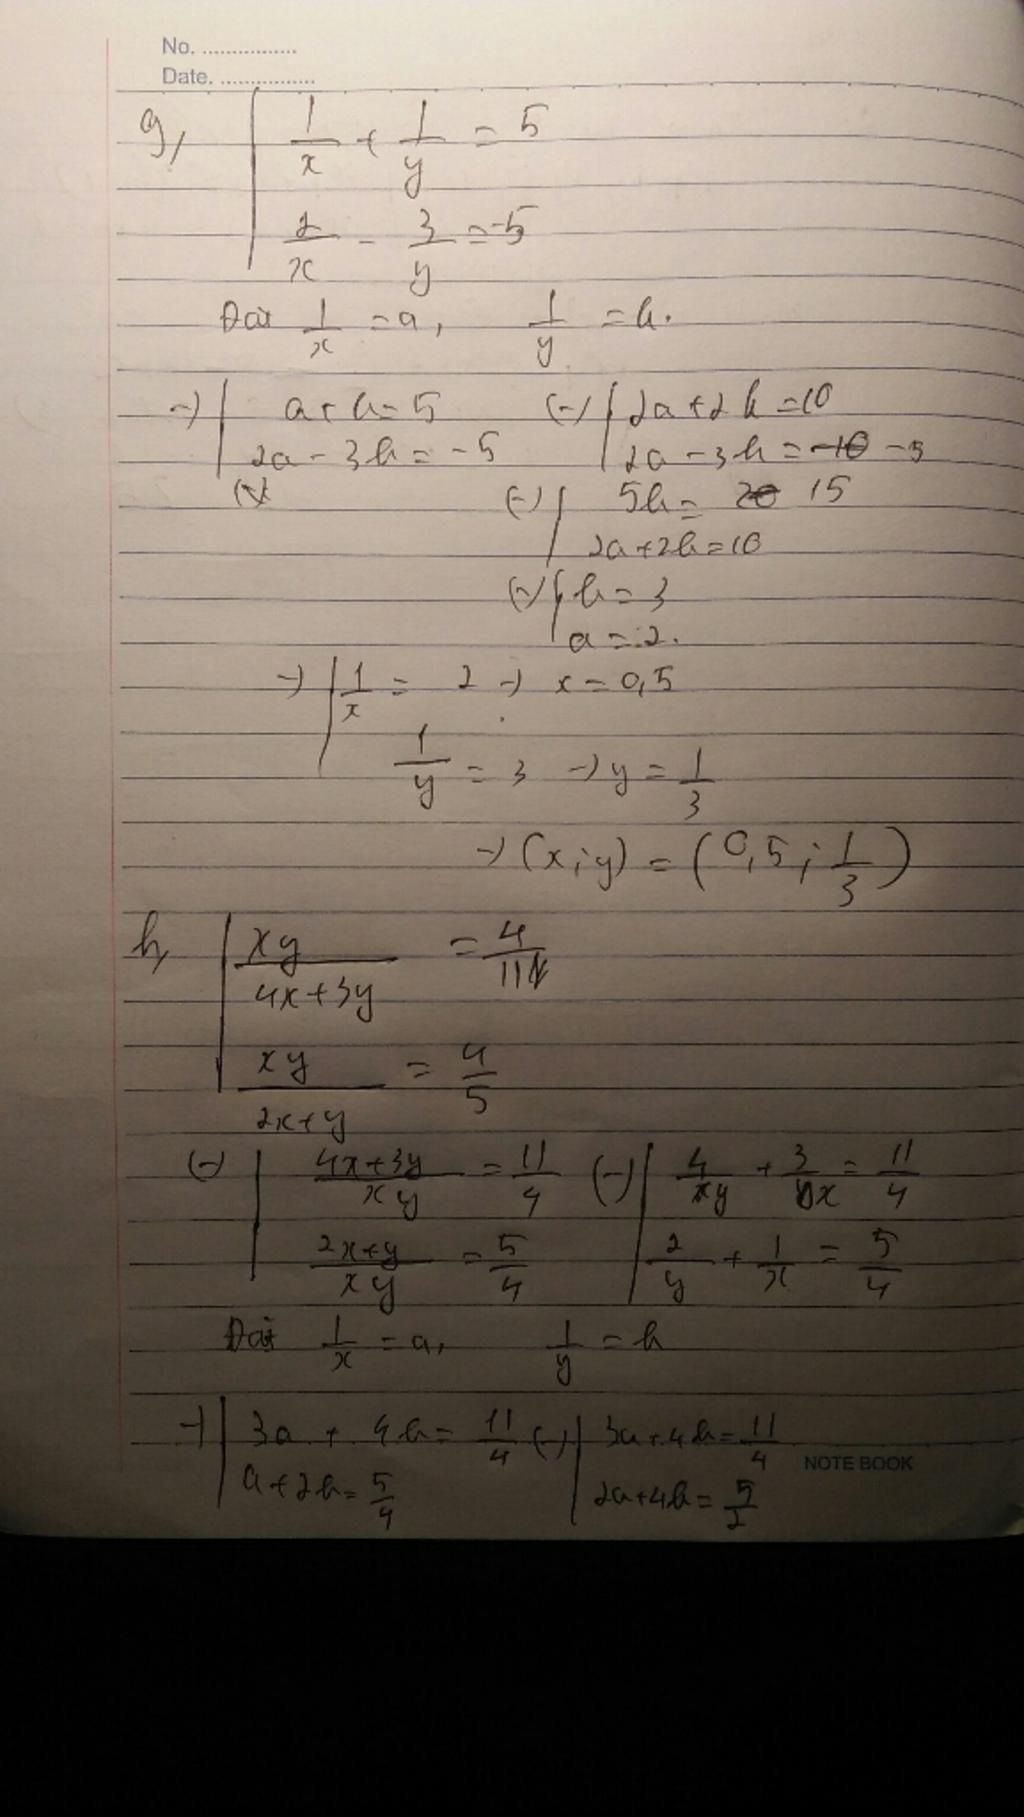 No. ................
Date. ................
g, 1/x + 1/y = 5
2/x - 3/y = -5
Đặt 1/x = a, 1/y = b.
→ a + b = 5 (-) 2a + 2b = 10
2a - 3b = -5 2a - 3b = -5
(-) 5b = 15
2a + 2b = 10
(-) b = 3
a = 2.
→ 1/x = 2 → x = 0,5
1/y = 3 → y = 1/3
→ (x; y) = (0,5; 1/3)
h, xy/(4x+3y) = 4/11
xy/(2x+y) = 4/5
(-) (4x+3y)/xy = 11/4 (-) 4/y + 3/x = 11/4
(2x+y)/xy = 5/4 2/y + 1/x = 5/4
Đặt 1/x = a, 1/y = b
→ 3a + 4b = 11/4 (-) 3a + 4b = 11/4
a + 2b = 5/4 2a + 4b = 5/2
NOTE BOOK